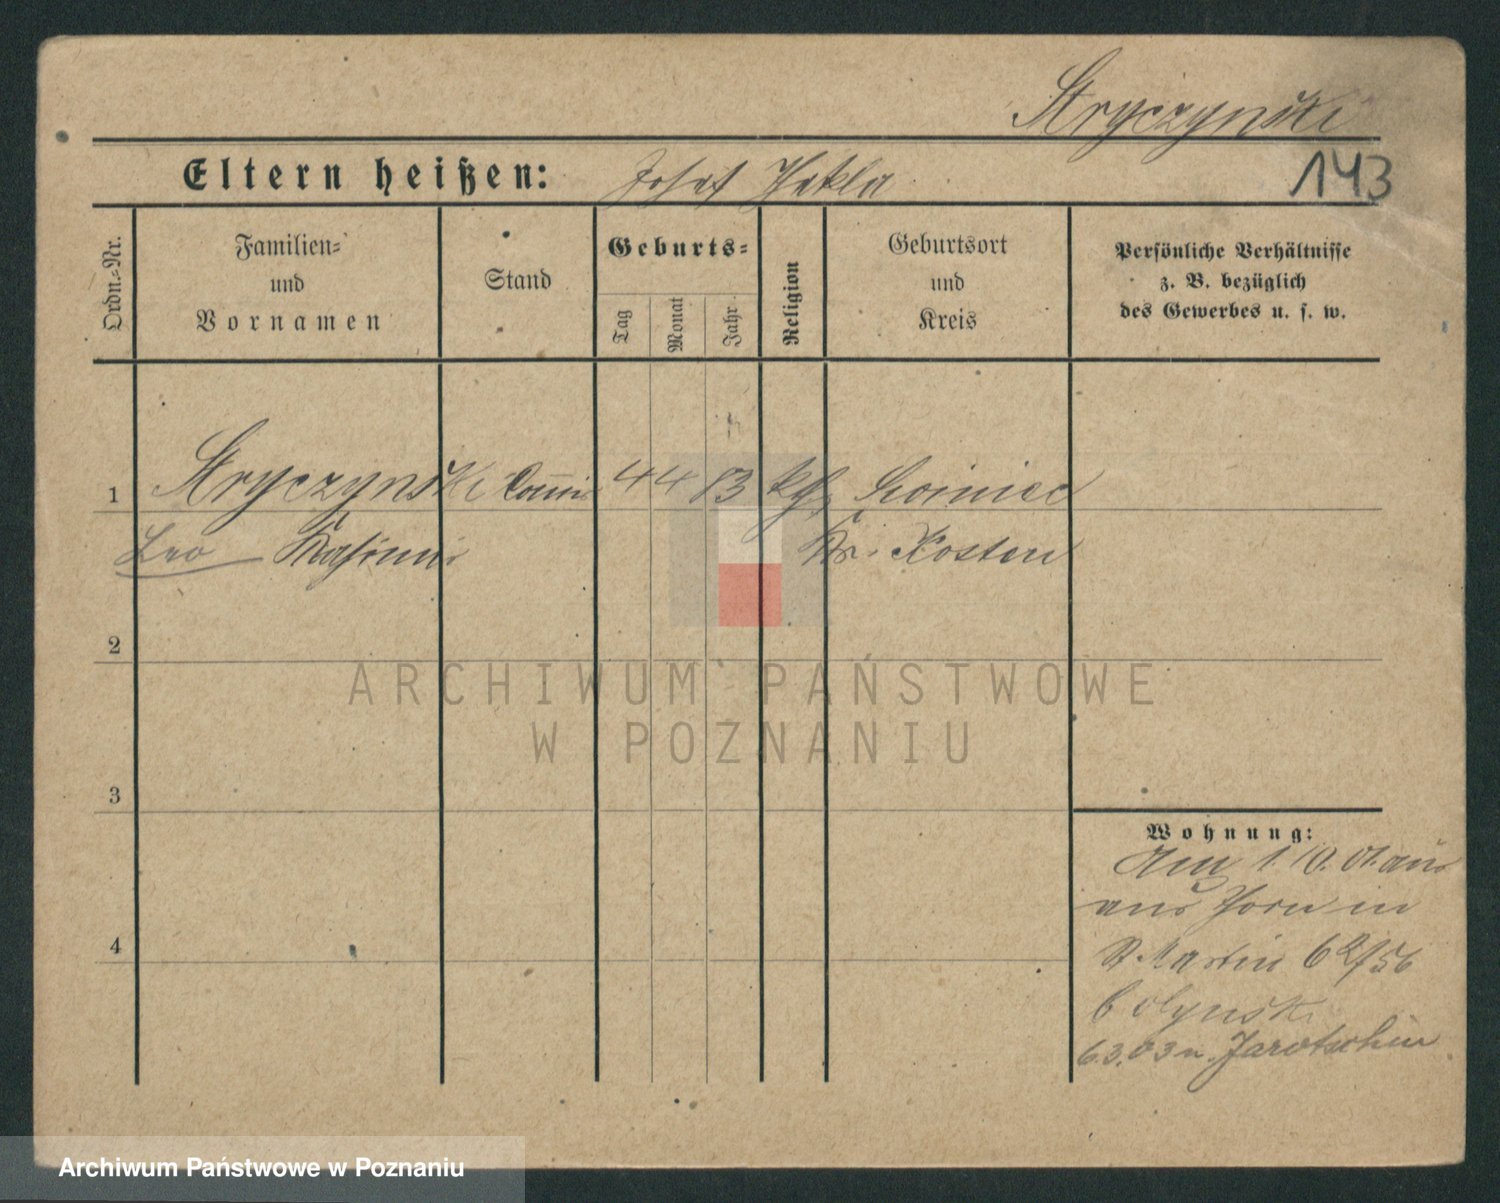 Stryczynski
Eltern heißen: Josef Thekla
143
Ordn.-Nr.
Familien-
und
Vornamen
Stand
Geburts-
Tag
Monat
Jahr
Religion
Geburtsort
und
Kreis
Persönliche Verhältnisse
z. B. bezüglich
des Gewerbes u. s. w.
1 Stryczynski Commis 4 4 83 kth
Leo Kasimir Kr. Kosten
2
3
4
Wohnung:
Am 1.10.01
aus Thorn in
St. Martin 62/56
6.3.03 n. Jarotschin
ARCHIWUM PAŃSTWOWE
W POZNANIU
Archiwum Państwowe w Poznaniu